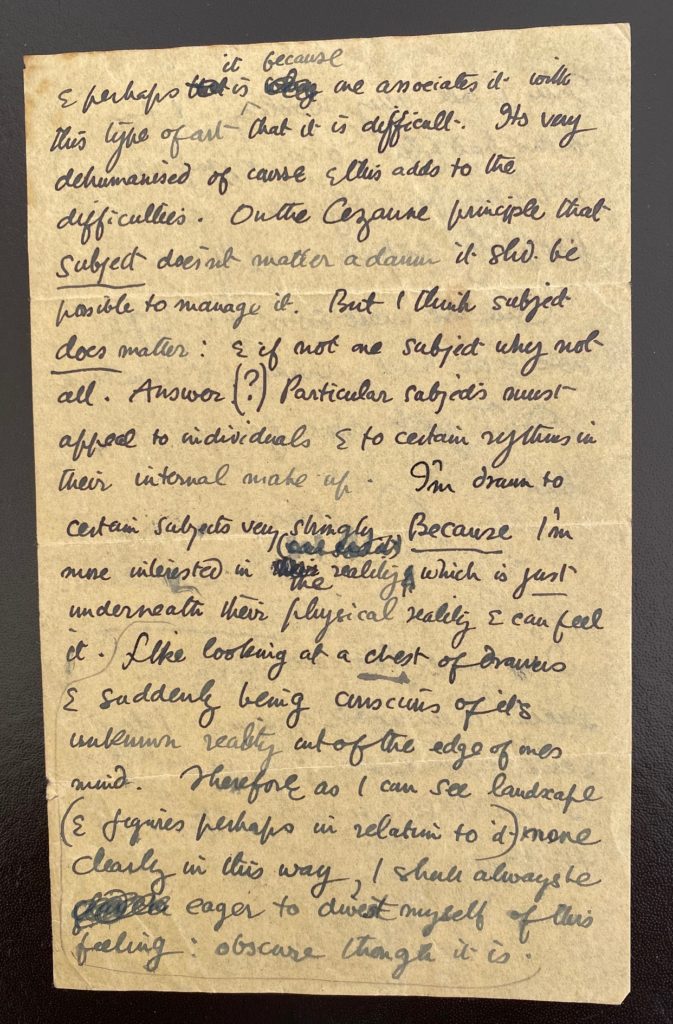 it because
& perhaps is one associates it with
this type of art ^ that it is difficult. Its very
dehumanised of course & this adds to the
difficulties. On the Cezanne principle that
subject doesn't matter a damn it shd. be
possible to manage it. But I think subject
does matter: & if not one subject why not
all. Answer (?) Particular subjects must
appeal to individuals & to certain rythms in
their internal make up. I'm drawn to
certain subjects very strongly Because I'm
more interested in the reality, which is just
underneath their physical reality & can feel
it. Like looking at a chest of drawers
& suddenly being conscious of its
unknown reality out of the edge of ones
mind. Therefore as I can see landscape
(& figures perhaps in relation to it) more
clearly in this way, I shall always be
eager to divest myself of this
feeling: obscure though it is.